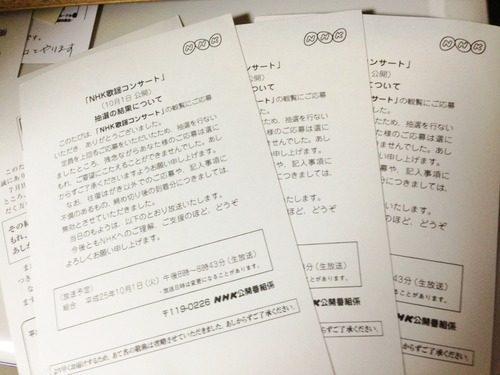 NHK
「NHK歌謡コンサート」
(10月1日 公開)
抽選の結果について
このたびは、「NHK歌謡コンサート」の観覧にご応募
いただき、ありがとうございました。
定員を上回るご応募をいただいたため、抽選を行ない
ましたところ、残念ながらあなた様のご応募は選に
もれ、ご要望にこたえることができませんでした。あし
からずご了承くださいますようお願い申し上げます。
なお、往復はがき以外でのご応募や、記入事項に
不備のあるもの、締め切り後の到着分につきましては、
無効とさせていただきました。
当日のもようは、以下のとおり放送いたします。
今後ともNHKへのご理解、ご支援のほど、どうぞ
よろしくお願い申し上げます。
〈放送予定〉
総合 平成25年10月1日(火) 午後8時〜8時43分(生放送)
放送日時は変更になることがあります。
〒119-0226 NHK公開番組係
より早くお届けするため、あて名の敬称は省略させていただきました。あしからずご了承ください。
NHK
サート」
について
ート」の観覧にご応募
ため、抽選を行ない
た様のご応募は選に
きませんでした。あし
い申し上げます。
募や、記入事項に
分につきましては、
送いたします。
のほど、どうぞ
43分(生放送)
ることがあります。
NHK公開番組係
しからずご了承ください。
NHK
サート」
について
ート」の観覧にご応募
ため、抽選を行ない
様のご応募は選に
きませんでした。あし
い申し上げます。
募や、記入事項に
分につきましては、
送いたします。
のほど、どうぞ
3分(生放送)
ることがあります。
NHK公開番組係
しからずご了承ください。